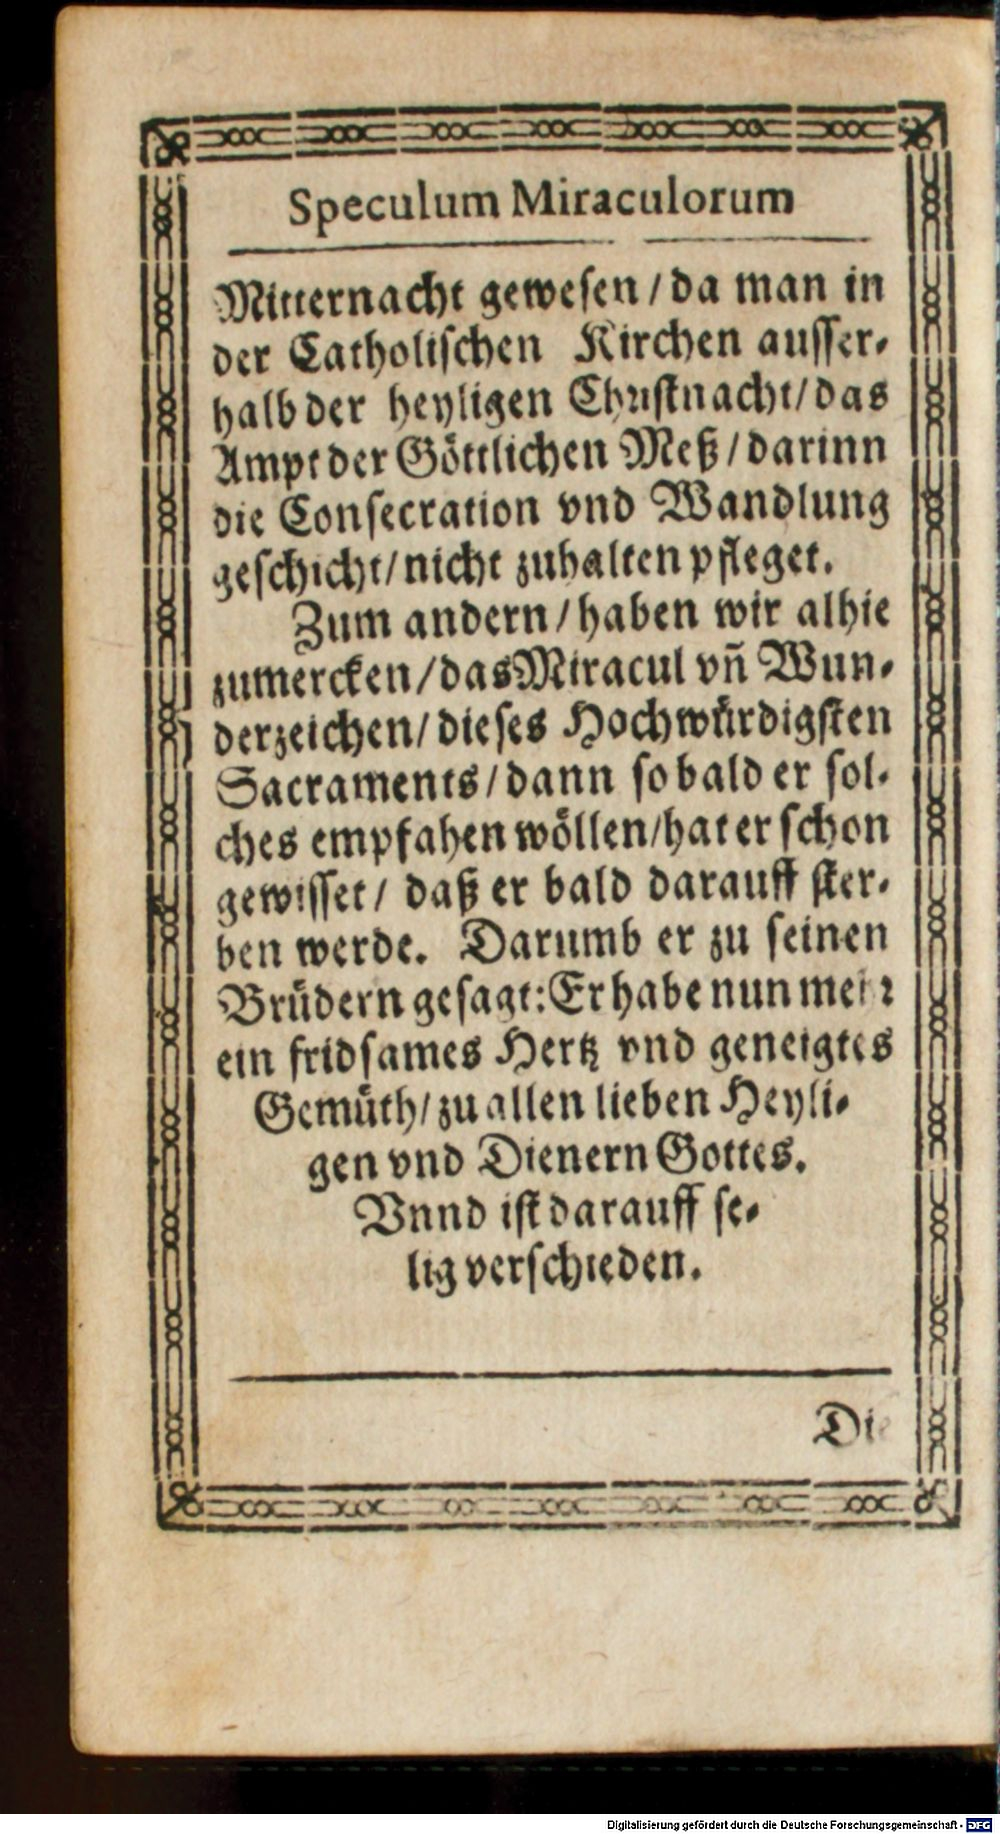 Speculum Miraculorum
Mitternacht gewesen / da man in
der Catholischen Kirchen ausser-
halb der heyligen Christnacht / das
Ampt der Göttlichen Meß / darinn
die Consecration vnd Wandlung
geschicht / nicht zuhalten pfleget.
Zum andern / haben wir alhie
zumercken / das Miracul vñ Wun-
derzeichen / dieses Hochwürdigsten
Sacraments / dann so bald er sol-
ches empfahen wöllen / hat er schon
gewisset / daß er bald darauff ster-
ben werde. Darumb er zu seinen
Brüdern gesagt: Er habe nun mehr
ein fridsames Hertz vnd geneigtes
Gemüth / zu allen lieben Heyli-
gen vnd Dienern Gottes.
Vnnd ist darauff se-
lig verschieden.
Die
Digitalisierung gefördert durch die Deutsche Forschungsgemeinschaft - DFG